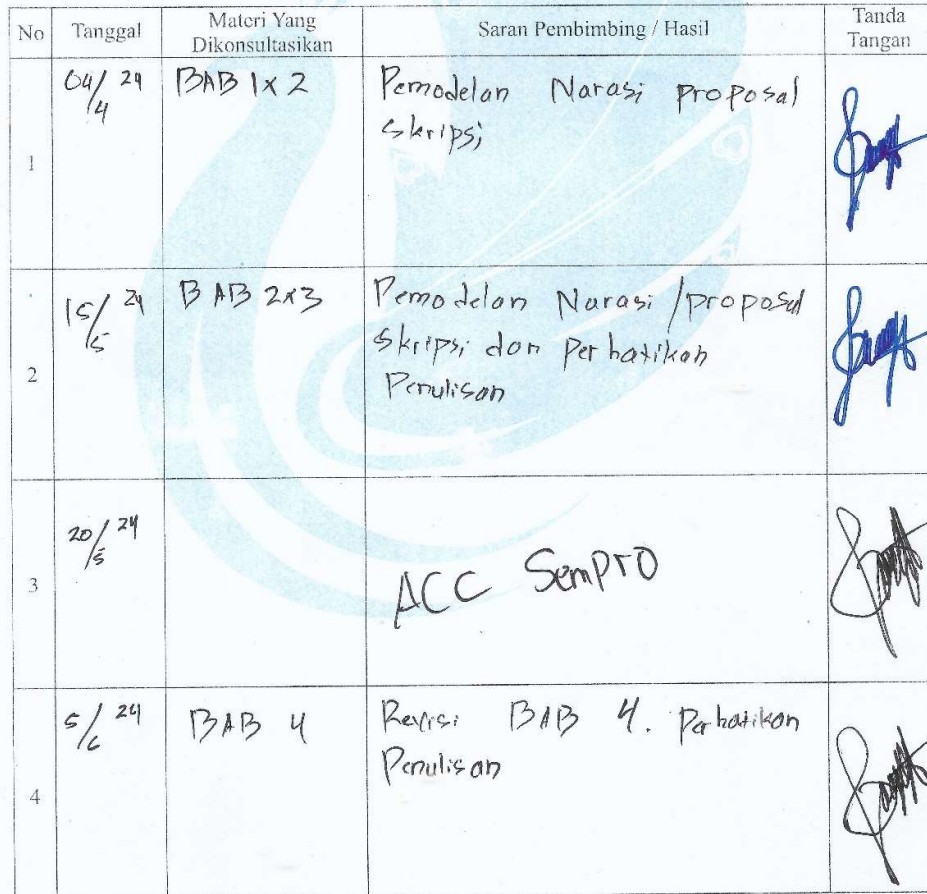 No Tanggal Materi Yang Dikonsultasikan Saran Pembimbing / Hasil Tanda Tangan
1 04/4 24 BAB 1 x 2 Pemodelan Narasi proposal
skripsi
2 15/5 24 BAB 2x3 Pemodelan Narasi /proposal
skripsi dan perhatikan
Penulisan
3 20/5 24 ACC Sempro
4 5/6 24 BAB 4 Revisi BAB 4. Perhatikan
Penulisan